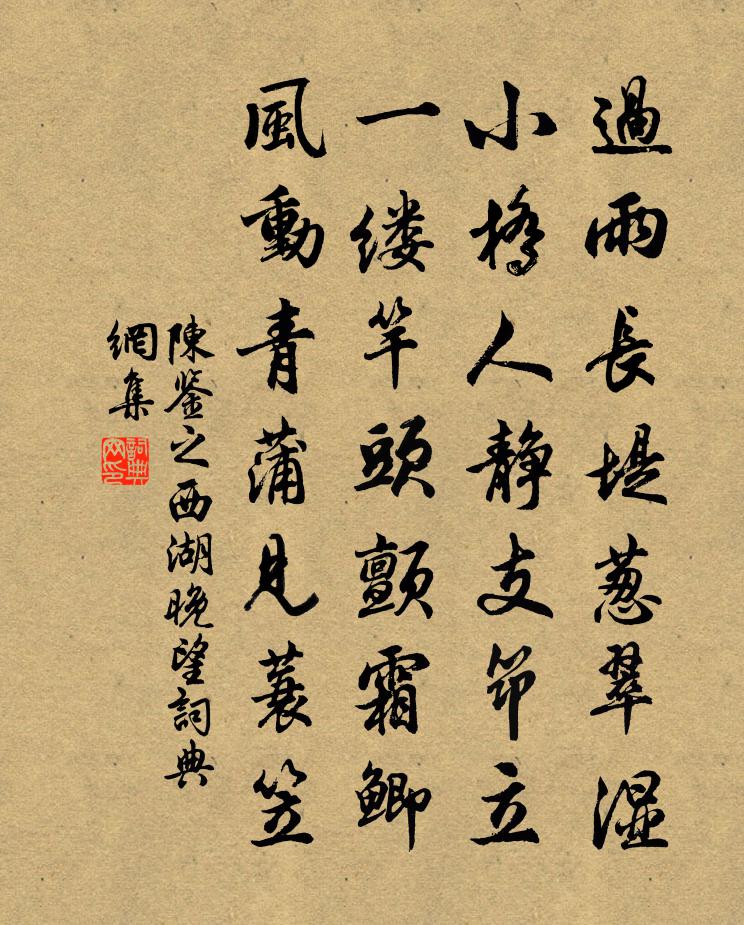 過雨長堤葱翠湿
小橋人静支筇立
一缕竿頭顫霜鲫
風動青蒲見蓑笠
陳鉴之西湖晚望詞典
網集
詞典
网印